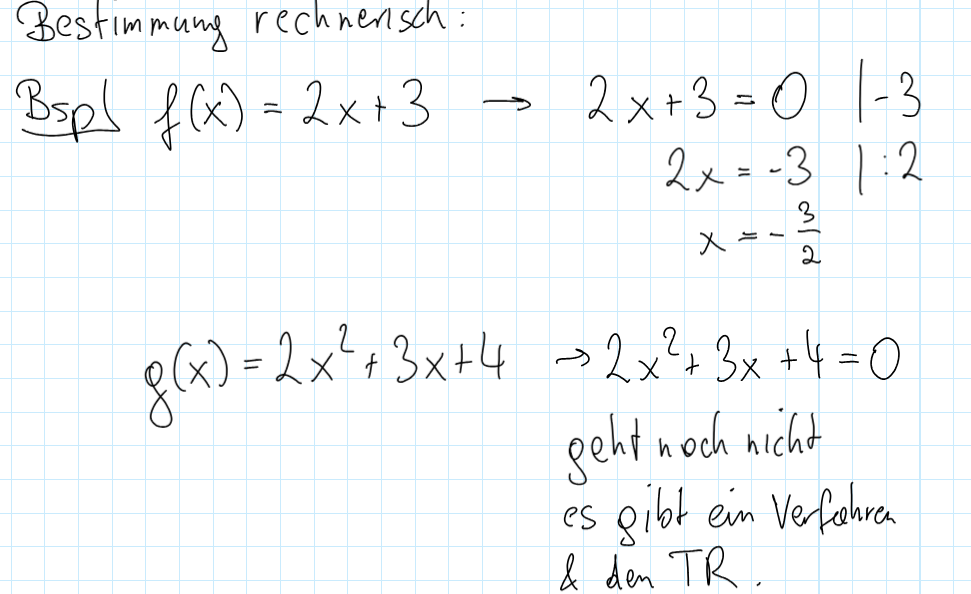 Bestimmung rechnerisch:
Bspl f(x) = 2x+3 → 2x+3 = 0 |-3
2x = -3 |:2
x = - 3/2
g(x) = 2x²+3x+4 → 2x²+3x+4 = 0
geht noch nicht
es gibt ein Verfahren
& den TR.